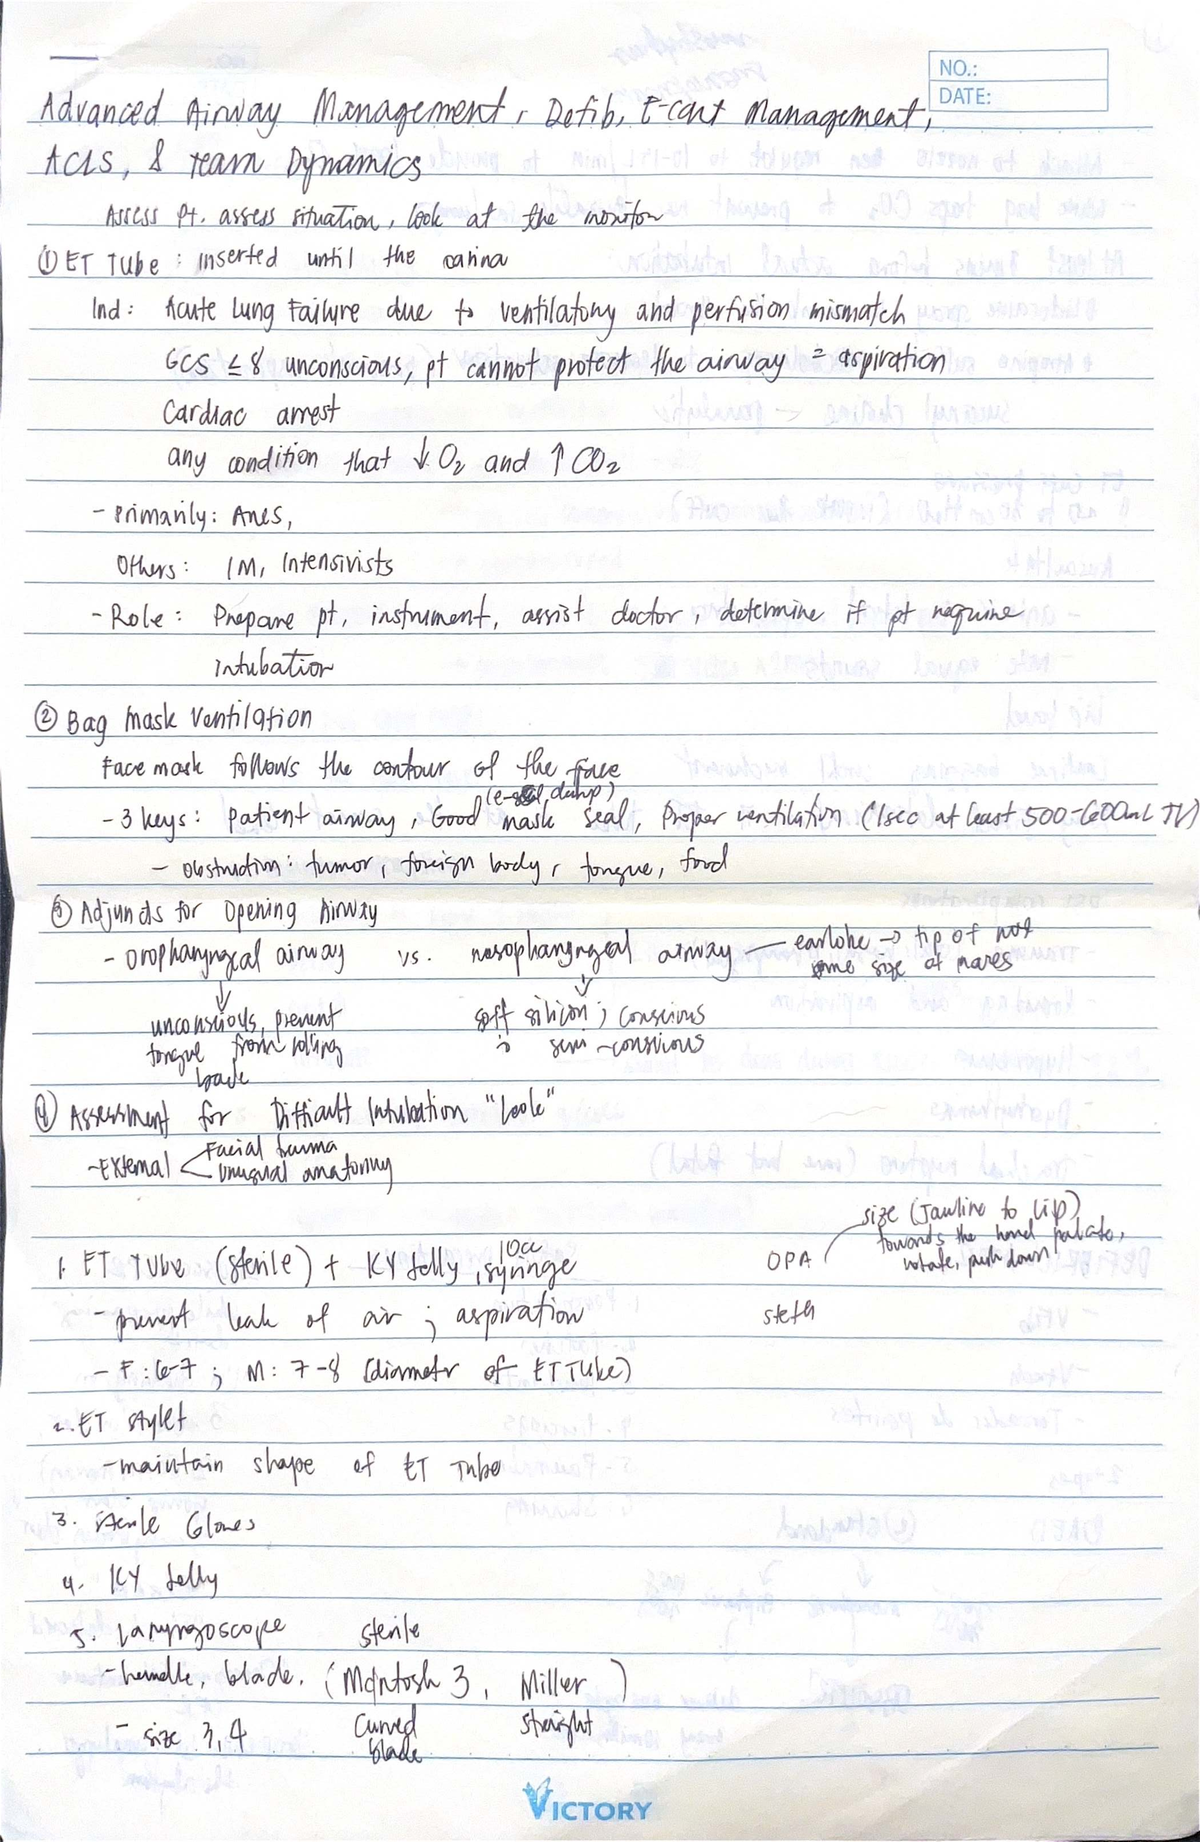 NO.:
DATE:
Advanced Airway Management, Defib, E-cart Management,
ACLS, & Team Dynamics
Assess Pt. assess situation, look at the monitor
① ET Tube : inserted until the carina
Ind: Acute Lung Failure due to ventilatory and perfusion mismatch
GCS ≤ 8 unconscious, pt cannot protect the airway = aspiration
Cardiac arrest
any condition that ↓ O₂ and ↑ CO₂
- Primarily: Anes,
Others: IM, Intensivists
- Role: Prepare pt, instrument, assist doctor, determine if pt require
intubation
② Bag Mask Ventilation
Face mask follows the contour of the face
- 3 keys: Patient airway, Good mask seal, Proper ventilation (1sec at least 500-600mL TV)
- Obstruction: tumor, foreign body, tongue, food
③ Adjuncts for Opening Airway
- Oropharyngeal airway vs. nasopharyngeal airway — earlobe → tip of nose
same size of nares
↓ ↓
unconscious, prevent soft silicon; conscious
tongue from rolling semi-conscious
back
④ Assessment for Difficult Intubation "Look"
- External < Facial trauma
Unusual anatomy
size (Jawline to Lip)
towards the hard palate,
rotate, push down
1. ET Tube (sterile) + KY Jelly, 10cc syringe OPA
- prevent leak of air ; aspiration steth
- F: 6-7 ; M: 7-8 (diameter of ET Tube)
2. ET stylet
- maintain shape of ET Tube
3. Sterile Gloves
4. KY Jelly
5. Laryngoscope sterile
- handle, blade. (McIntosh 3, Miller )
- size 3, 4 Curved straight
blade
VICTORY